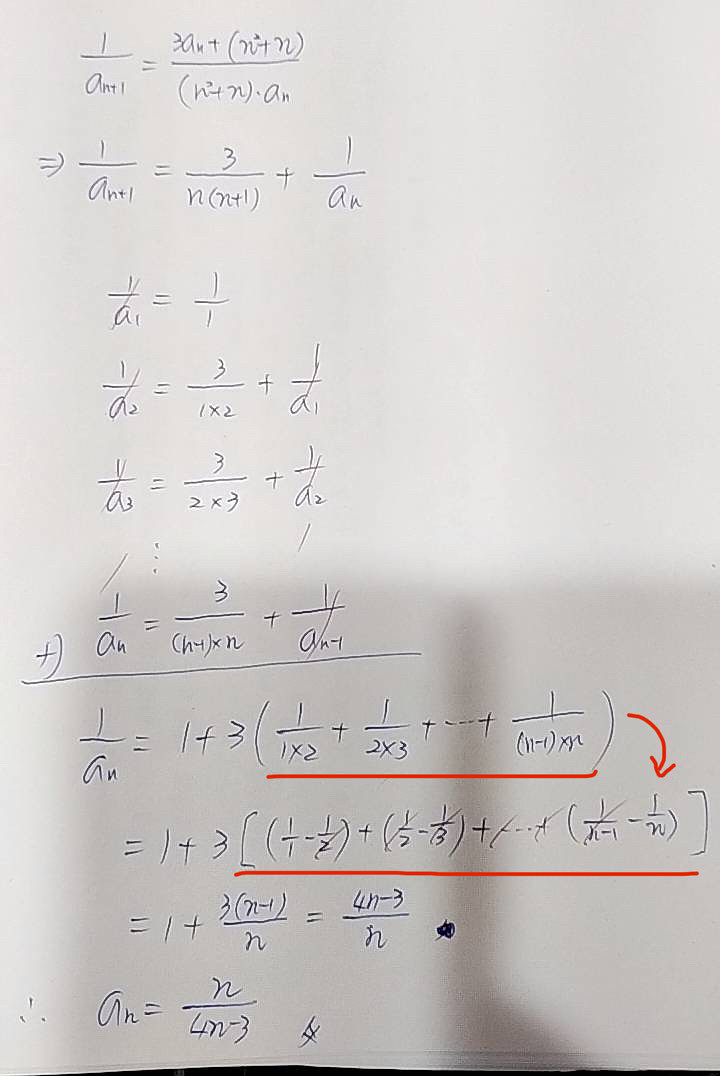 1/aₙ₊₁ = (3aₙ + (n²+n)) / ((n²+n)·aₙ)
⇒ 1/aₙ₊₁ = 3/(n(n+1)) + 1/aₙ
1/a₁ = 1/1
1/a₂ = 3/(1×2) + 1/a₁
1/a₃ = 3/(2×3) + 1/a₂
⋮
+) 1/aₙ = 3/((n-1)×n) + 1/aₙ₋₁
1/aₙ = 1+3(1/(1×2) + 1/(2×3) + ⋯ + 1/((n-1)×n))
= 1+3[(1/1 - 1/2) + (1/2 - 1/3) + ⋯ + (1/(n-1) - 1/n)]
= 1 + 3(n-1)/n = (4n-3)/n
∴ aₙ = n/(4n-3)